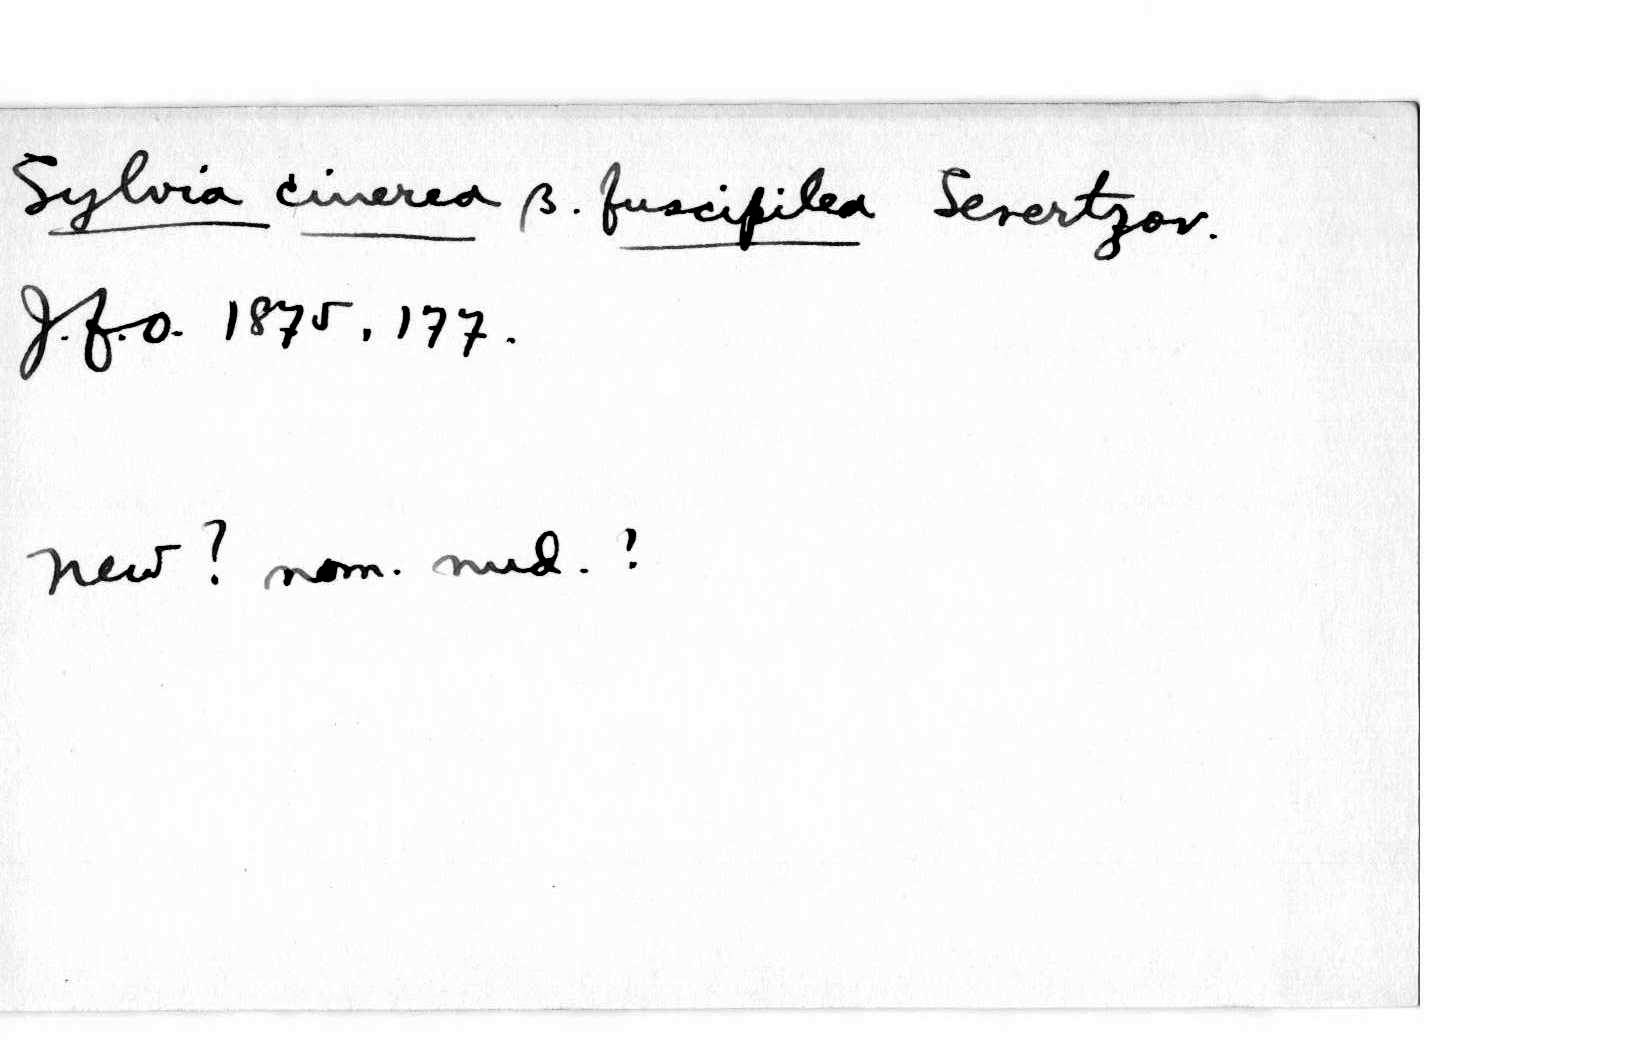 Sylvia cinerea β. fuscipilea Severtzov.
J.f.O. 1875, 177.
New? nom. nud.?